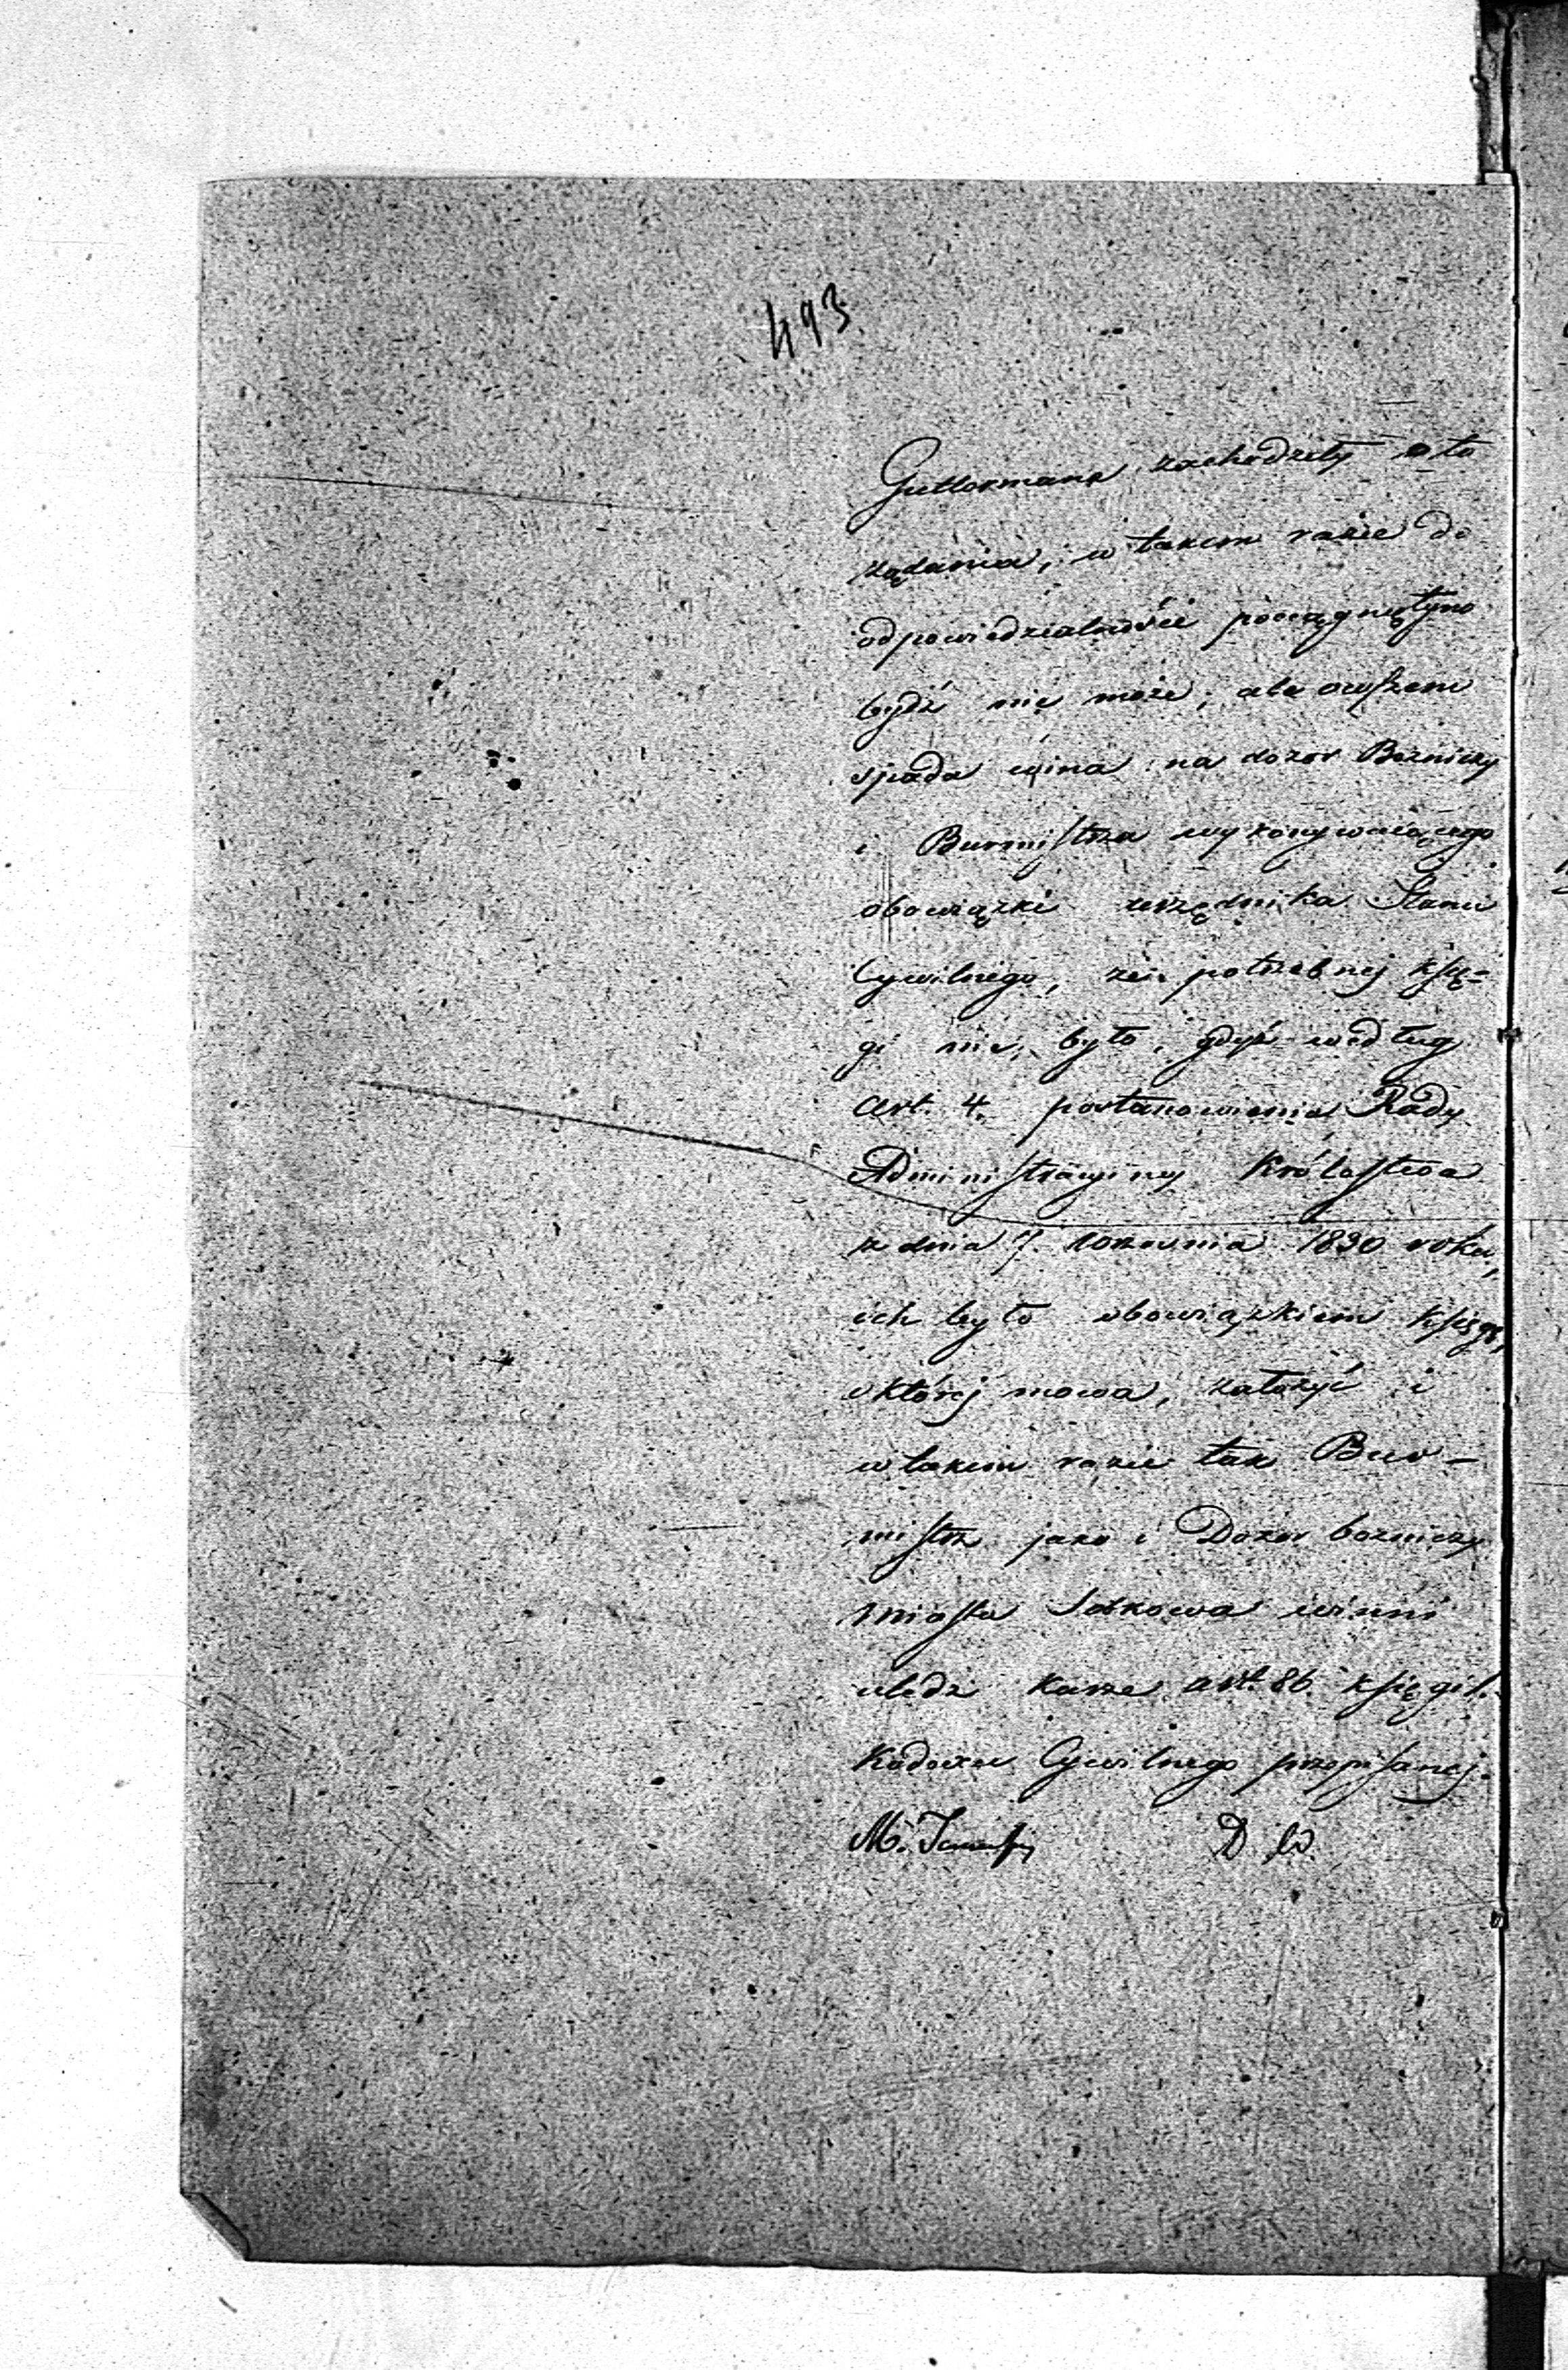 493
Guttermana zachodziły o to
żądania, w takim razie do
odpowiedzialności pociągniętym
bydź nie może, ale owszem
spada wina na dozór Bożniczy
i Burmistrza wykonywaiącego
obowiązki urzędnika Stanu
Cywilnego, że potrzebnej księ-
gi nie było, gdyż według
Art. 4. postanowienia Rady
Administracyiney Królestwa
z dnia 7. 1830 roku,
ich było obowiązkiem księgę,
o której mowa, założyć i
w takim razie tak Bur-
mistrz jako i Dozór bożniczy
miasta Sobkowa winni
uledz karze art 86 księgi I.
Kodexu Cywilnego przepisanej.
M. D. W.